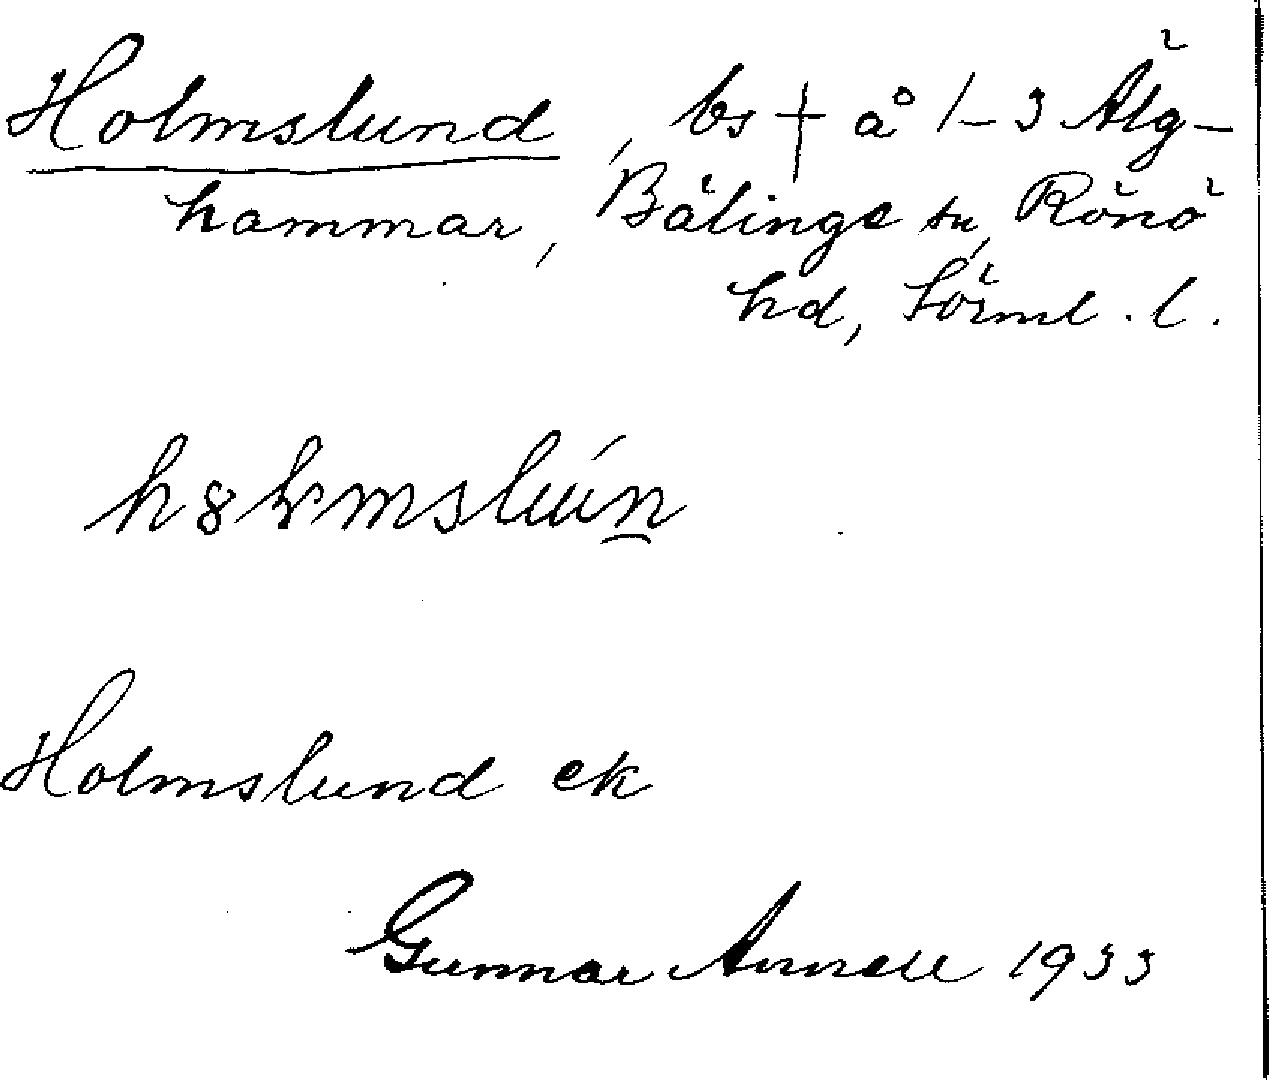 Holmslund, bs † å 1-3 Älg-
hammar, Bälinge sn, Rönö
hd, Sörml. l.
Holmslund ek
Gunnar Annell 1933